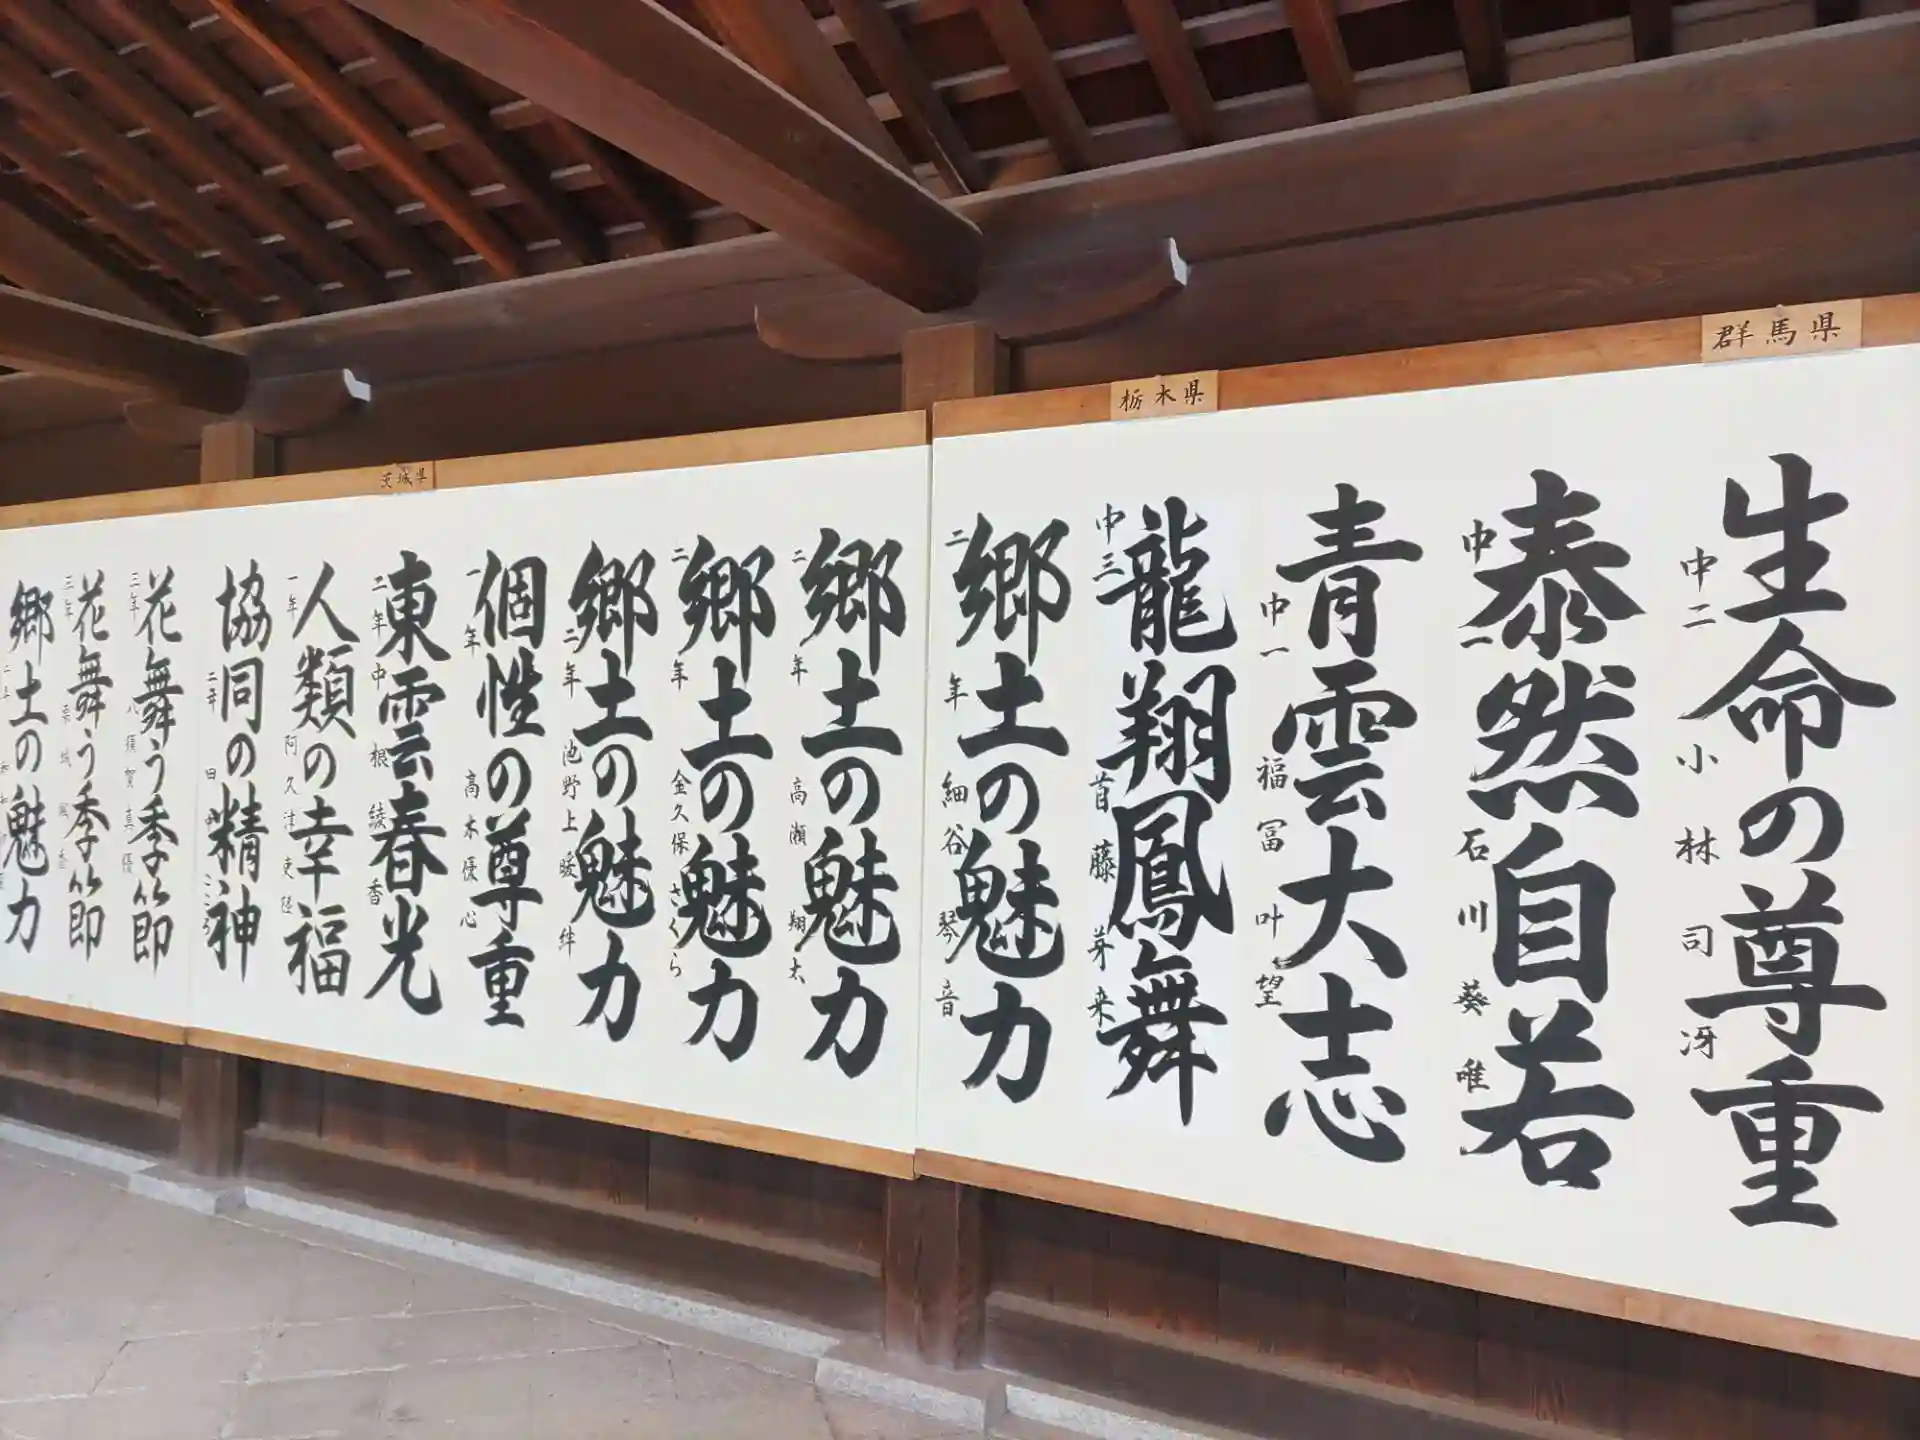 群馬県
生命の尊重
中二 小林司冴
泰然自若
中一 石川葵唯
青雲大志
中一 福冨叶望
栃木県
龍翔鳳舞
中三 首藤芽来
郷土の魅力
二年 細谷琴音
郷土の魅力
二年 高瀬翔太
郷土の魅力
二年 金久保さくら
郷土の魅力
二年 池野上暖絆
個性の尊重
一年 高木優心
茨城県
東雲春光
二年 中根綾香
人類の幸福
一年 阿久津
協同の精神
二年 田
花舞う季節
三年 八須賀真優
花舞う季節
三年
郷土の魅力